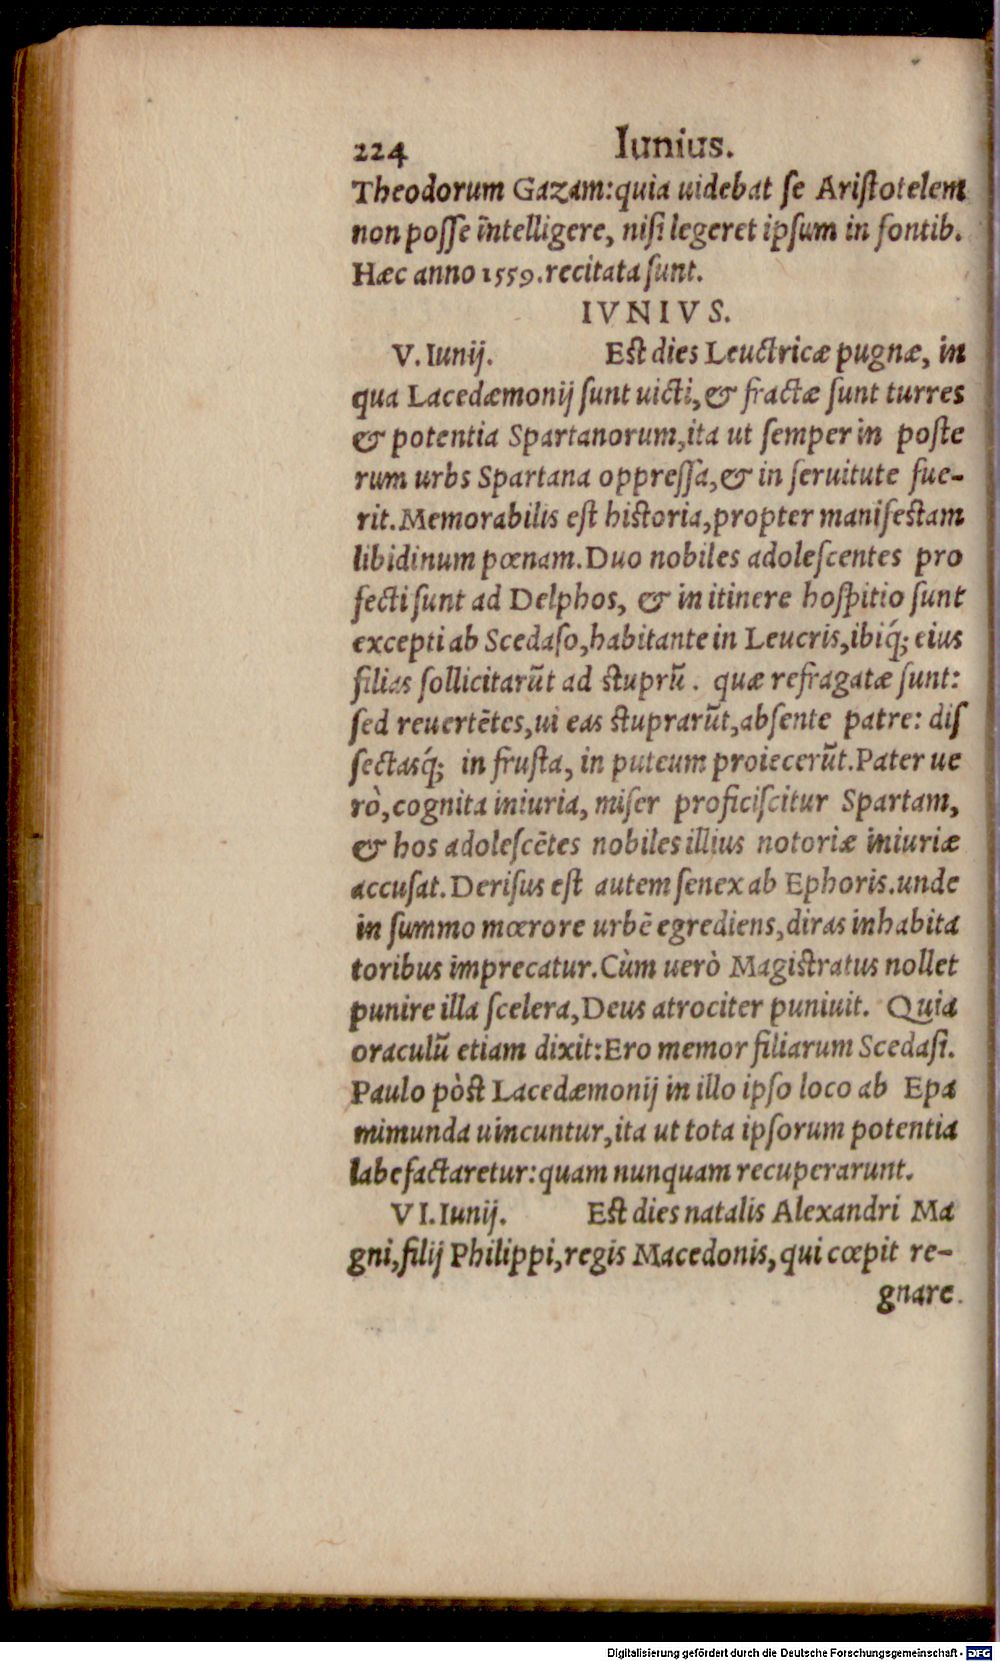 224 Iunius.
Theodorum Gazam:quia uidebat se Aristotelem
non posse intelligere, nisi legeret ipsum in fontib.
Hæc anno 1559.recitata sunt.
IVNIVS.
V. Iunij. Est dies Leuctricæ pugnæ, in
qua Lacedæmonij sunt uicti,& fractæ sunt turres
& potentia Spartanorum,ita ut semper in poste
rum urbs Spartana oppressa,& in seruitute fue-
rit.Memorabilis est historia,propter manifestam
libidinum pœnam.Duo nobiles adolescentes pro
fecti sunt ad Delphos, & in itinere hospitio sunt
excepti ab Scedaso,habitante in Leucris,ibiq́; eius
filias sollicitarũt ad stuprũ. quæ refragatæ sunt:
sed reuertẽtes,ui eas stuprarũt,absente patre: dis
sectasq́; in frusta, in puteum proiecerũt.Pater ue
rò,cognita iniuria, miser proficiscitur Spartam,
& hos adolescẽtes nobiles illius notoriæ iniuriæ
accusat.Derisus est autem senex ab Ephoris.unde
in summo mœrore urbẽ egrediens,diras inhabita
toribus imprecatur.Cùm uerò Magistratus nollet
punire illa scelera,Deus atrociter puniuit. Quia
oraculũ etiam dixit:Ero memor filiarum Scedasi.
Paulo pòst Lacedæmonij in illo ipso loco ab Epa
mimunda uincuntur,ita ut tota ipsorum potentia
labefactaretur:quam nunquam recuperarunt.
VI.Iunij. Est dies natalis Alexandri Ma
gni,filij Philippi,regis Macedonis,qui cœpit re-
gnare.
Digitalisierung gefördert durch die Deutsche Forschungsgemeinschaft - DFG